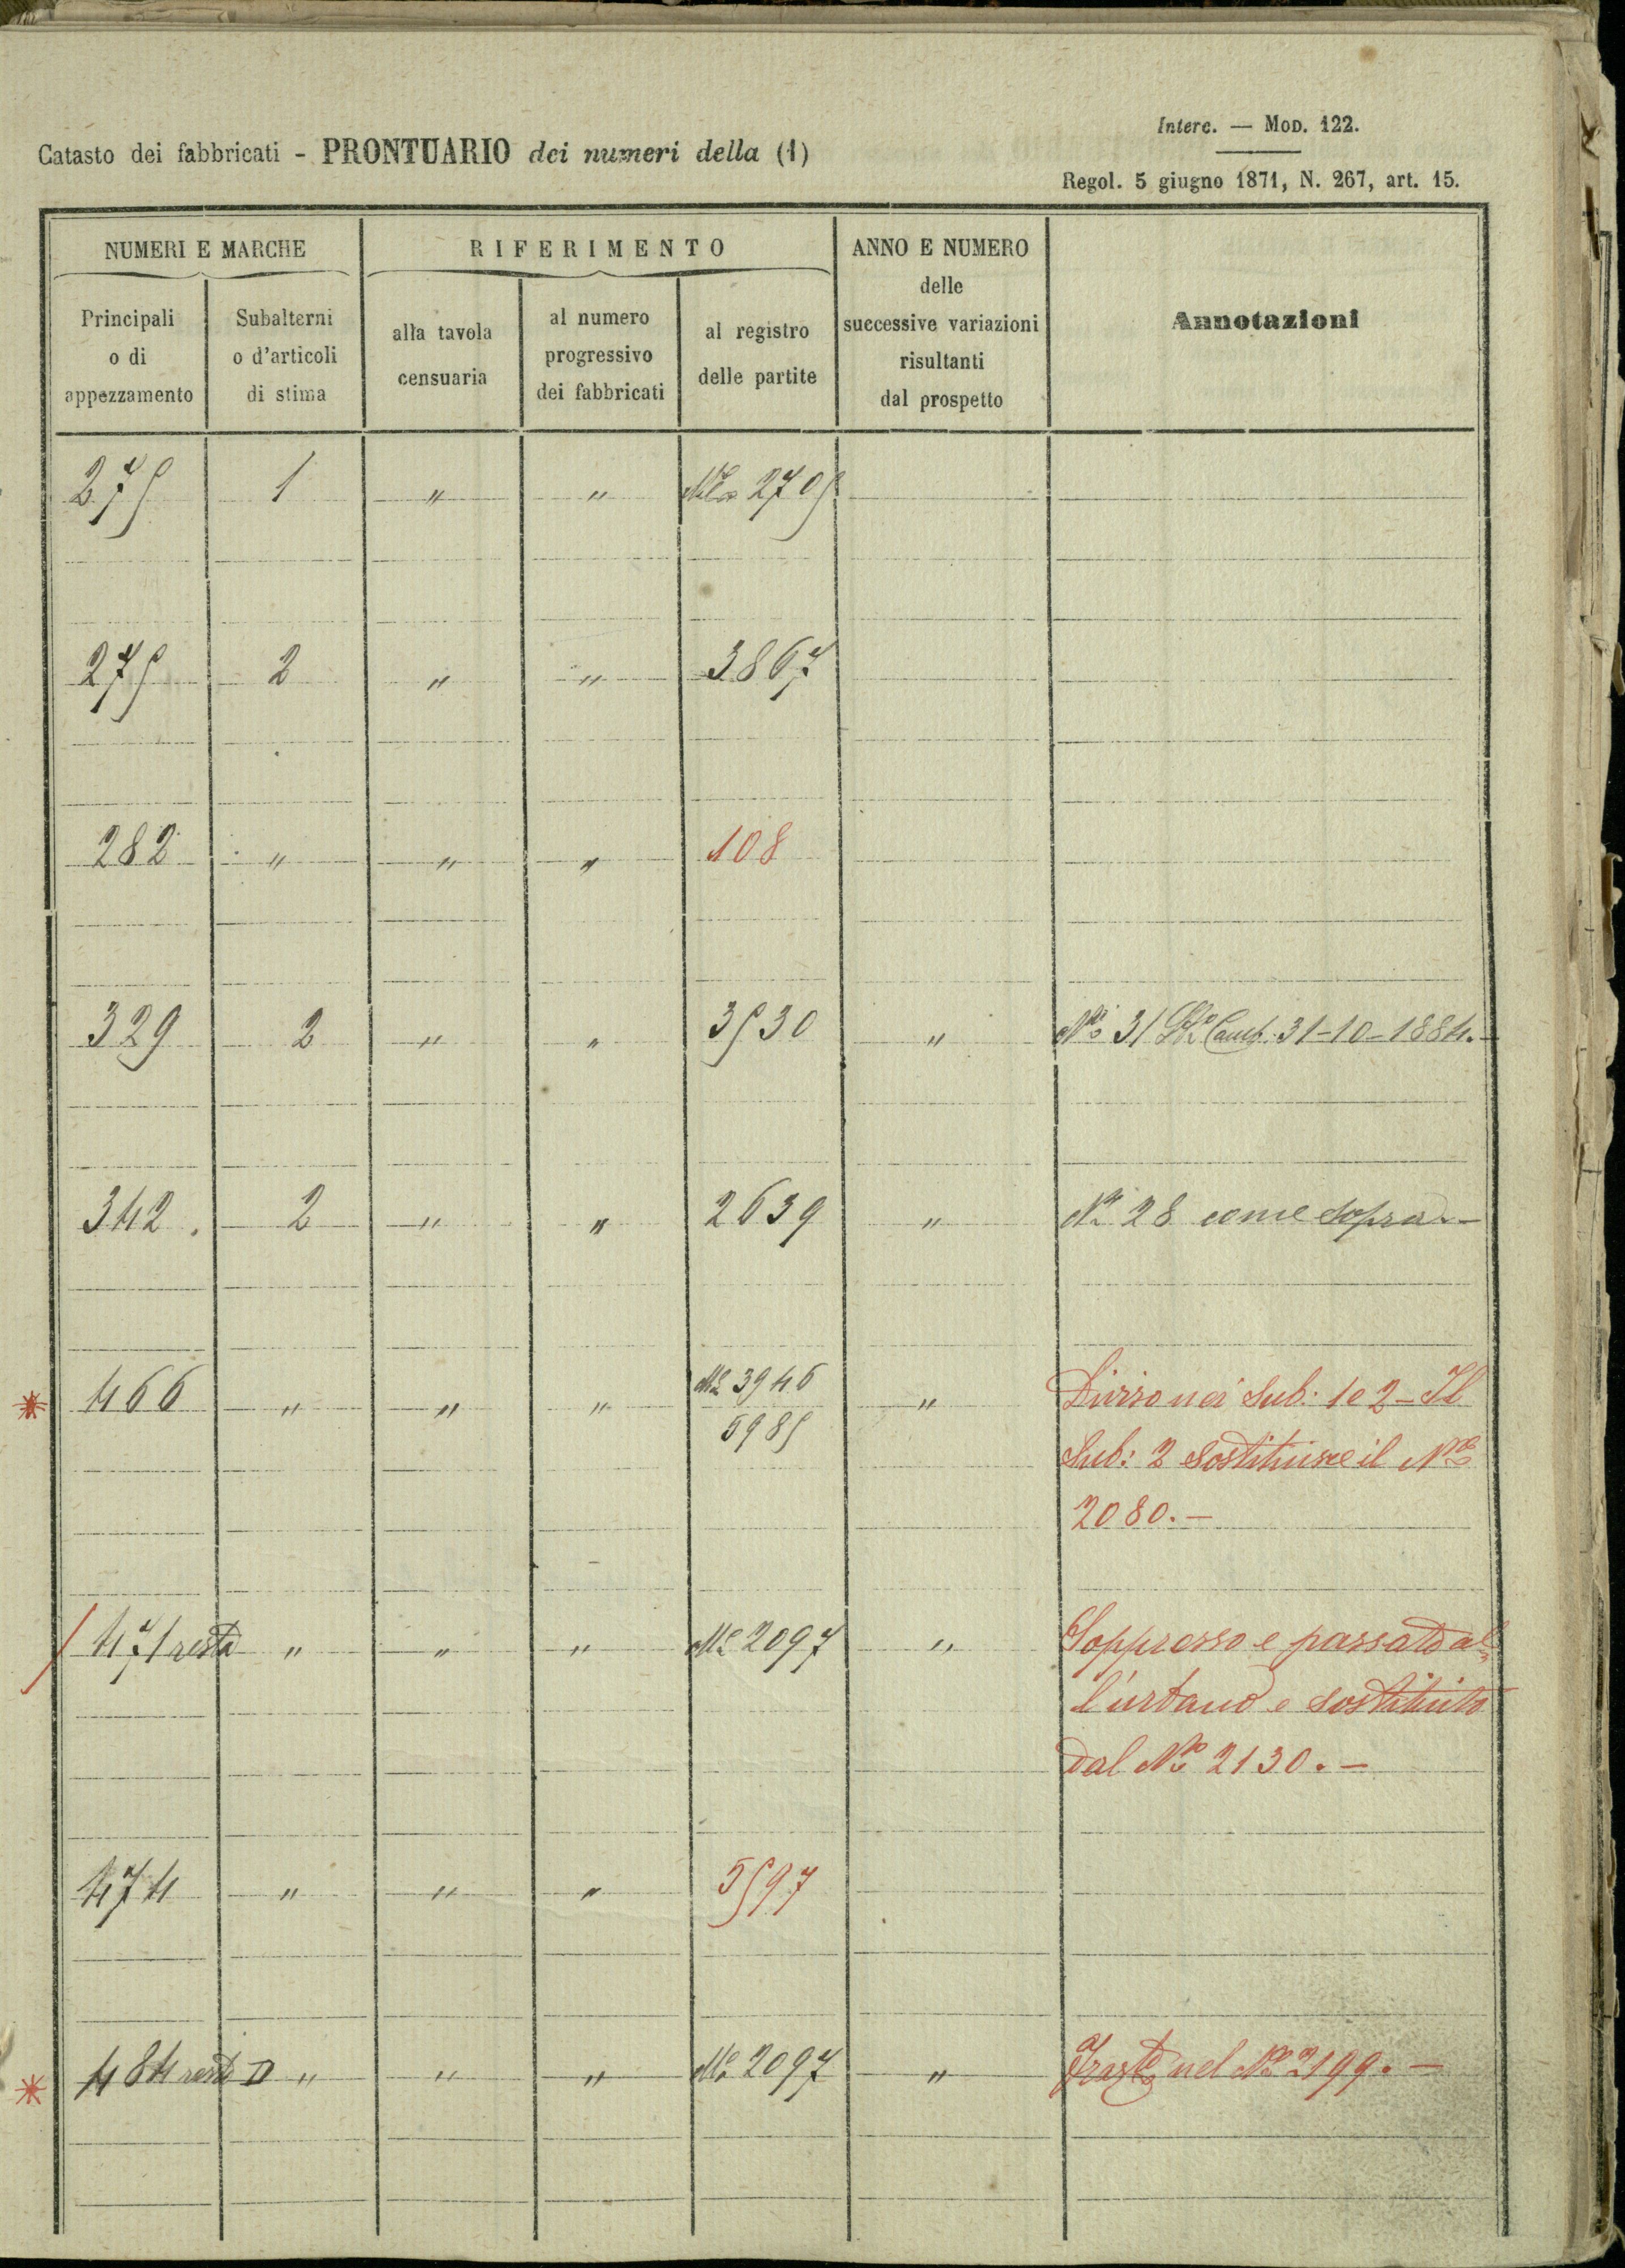 Interc. — Mod. 122.
Catasto dei fabbricati - PRONTUARIO dei numeri della (1)
Regol. 5 giugno 1871, N. 267, art. 15.
NUMERI E MARCHE
RIFERIMENTO
ANNO E NUMERO
delle
successive variazioni
risultanti
dal prospetto
Annotazioni
Principali
o di
appezzamento
Subalterni
o d'articoli
di stima
alla tavola
censuaria
al numero
progressivo
dei fabbricati
al registro
delle partite
275 1 " " 2705
275 2 " " 3867
282 " " " 108
329 2 " " 3530 " No 31 Camb. 31-10-1884.-
342. 2 " " 2639 " No 28 come sopra.-
* 466 " " " 3946 " Diviso nei Sub: 1 e 2 - Il
5985 Sub: 2 sostituisce il No
2080.-
/ 471 resto " " " 2097 " Soppresso e passato al=
l'urbano e sostituito
dal No 2130.-
474 " " " 5597
* 484 resto D " " " 2097 " nel No 2199.-